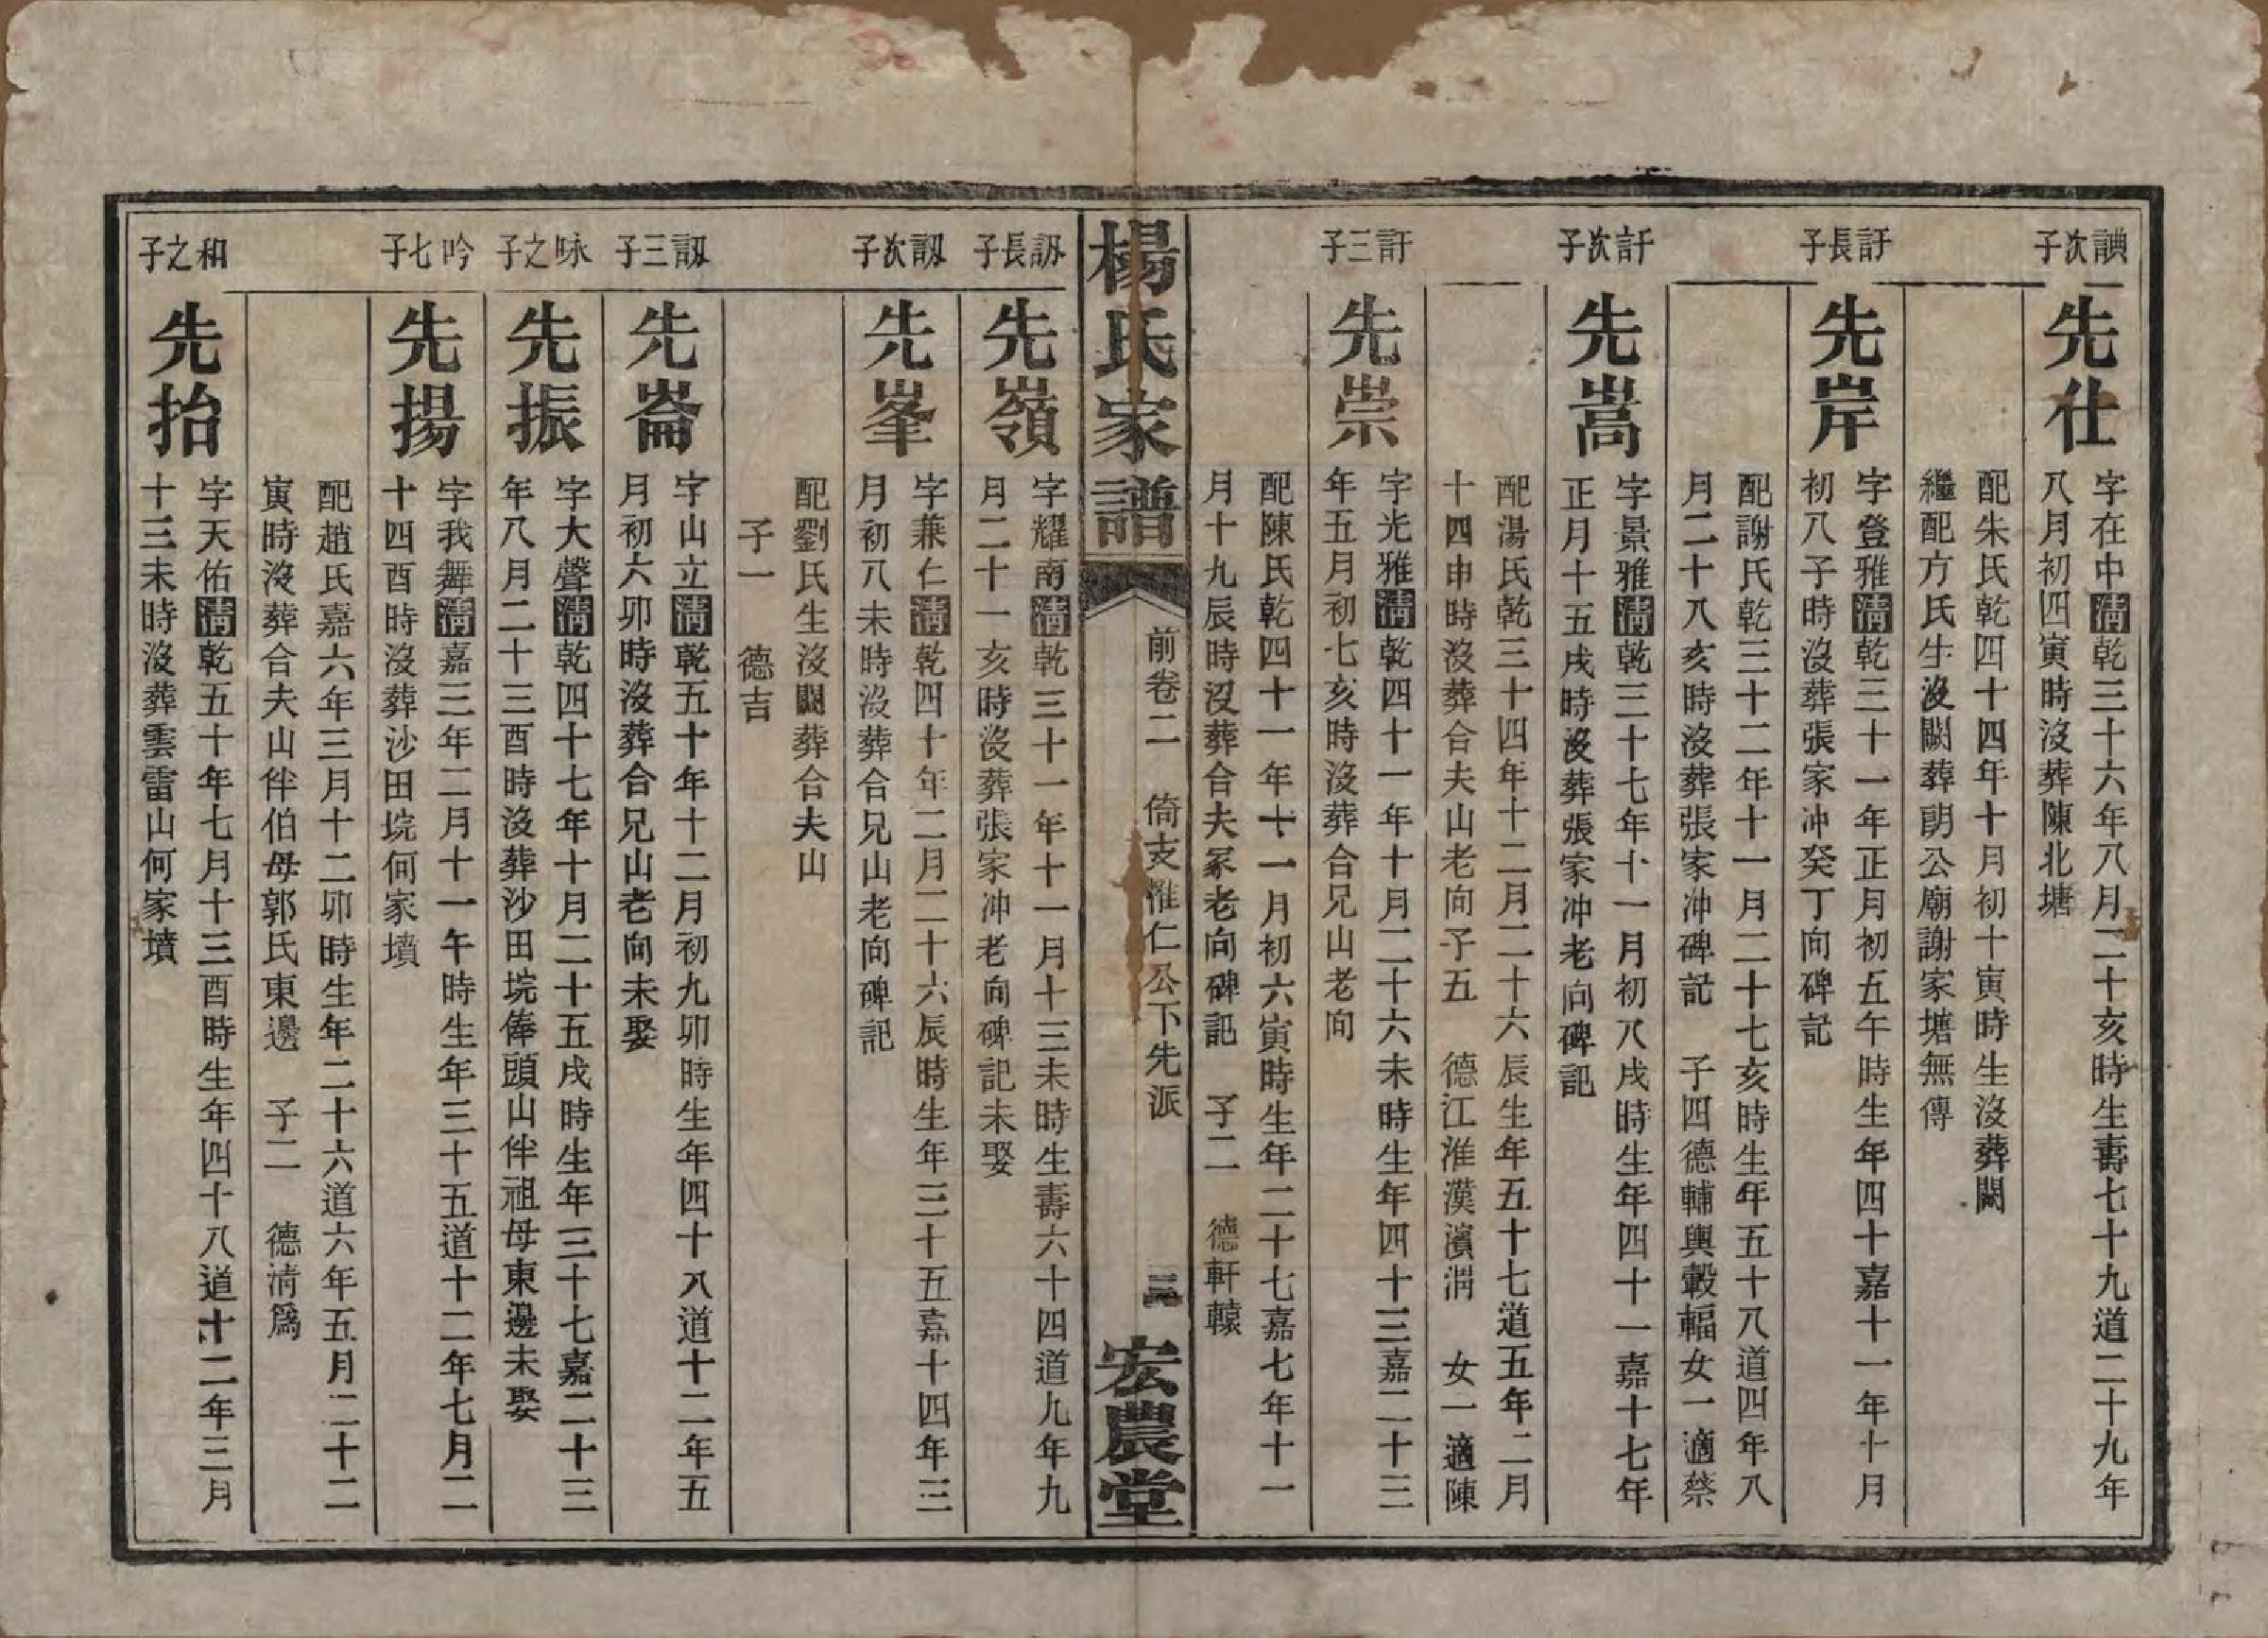 諌次子
先仕
字在中清乾三十六年八月二十亥時生壽七十九道二十九年
八月初四寅時沒葬陳北塘
配朱氏乾四十四年十月初十寅時生沒葬闕
繼配方氏生沒闕葬朗公廟謝家塘無傳
訏長子
先岸
字登雅清乾三十一年正月初五午時生年四十嘉十一年十月
初八子時沒葬張家冲癸丁向碑記
配謝氏乾三十二年十一月二十七亥時生年五十八道四年八
月二十八亥時沒葬張家冲碑記 子四德輔輿轂輻女一適蔡
訏次子
先嵩
字景雅清乾三十七年十一月初八戌時生年四十一嘉十七年
正月十五戌時沒葬張家冲老向碑記
配湯氏乾三十四年十二月二十六辰生年五十七道五年二月
十四申時沒葬合夫山老向子五 德江淮漢濱渭 女一適陳
訏三子
先崇
字光雅清乾四十一年十月二十六未時生年四十三嘉二十三
年五月初七亥時沒葬合兄山老向
配陳氏乾四十一年十一月初六寅時生年二十七嘉七年十一
月十九辰時沒葬合夫冢老向碑記 子二 德軒轅
楊氏家譜 前卷二 倚支惟仁公下先派 三 宏農堂
訒長子
先嶺
字耀南清乾三十一年十一月十三未時生壽六十四道九年九
月二十一亥時沒葬張家冲老向碑記未娶
訒次子
先峯
字兼仁清乾四十年二月二十六辰時生年三十五嘉十四年三
月初八未時沒葬合兄山老向碑記
配劉氏生沒闕葬合夫山
子一 德吉
訒三子
先崙
字山立清乾五十年十二月初九卯時生年四十八道十二年五
月初六卯時沒葬合兄山老向未娶
咏之子
先振
字大聲清乾四十七年十月二十五戌時生年三十七嘉二十三
年八月二十三酉時沒葬沙田垸俸頭山伴祖母東邊未娶
吟七子
先揚
字我舞清嘉三年二月十一午時生年三十五道十二年七月二
十四酉時沒葬沙田垸何家墳
配趙氏嘉六年三月十二卯時生年二十六道六年五月二十二
寅時沒葬合夫山伴伯母郭氏東邊 子二 德淸爲
和之子
先抬
字天佑清乾五十年七月十三酉時生年四十八道十二年三月
十三未時沒葬雲雷山何家墳